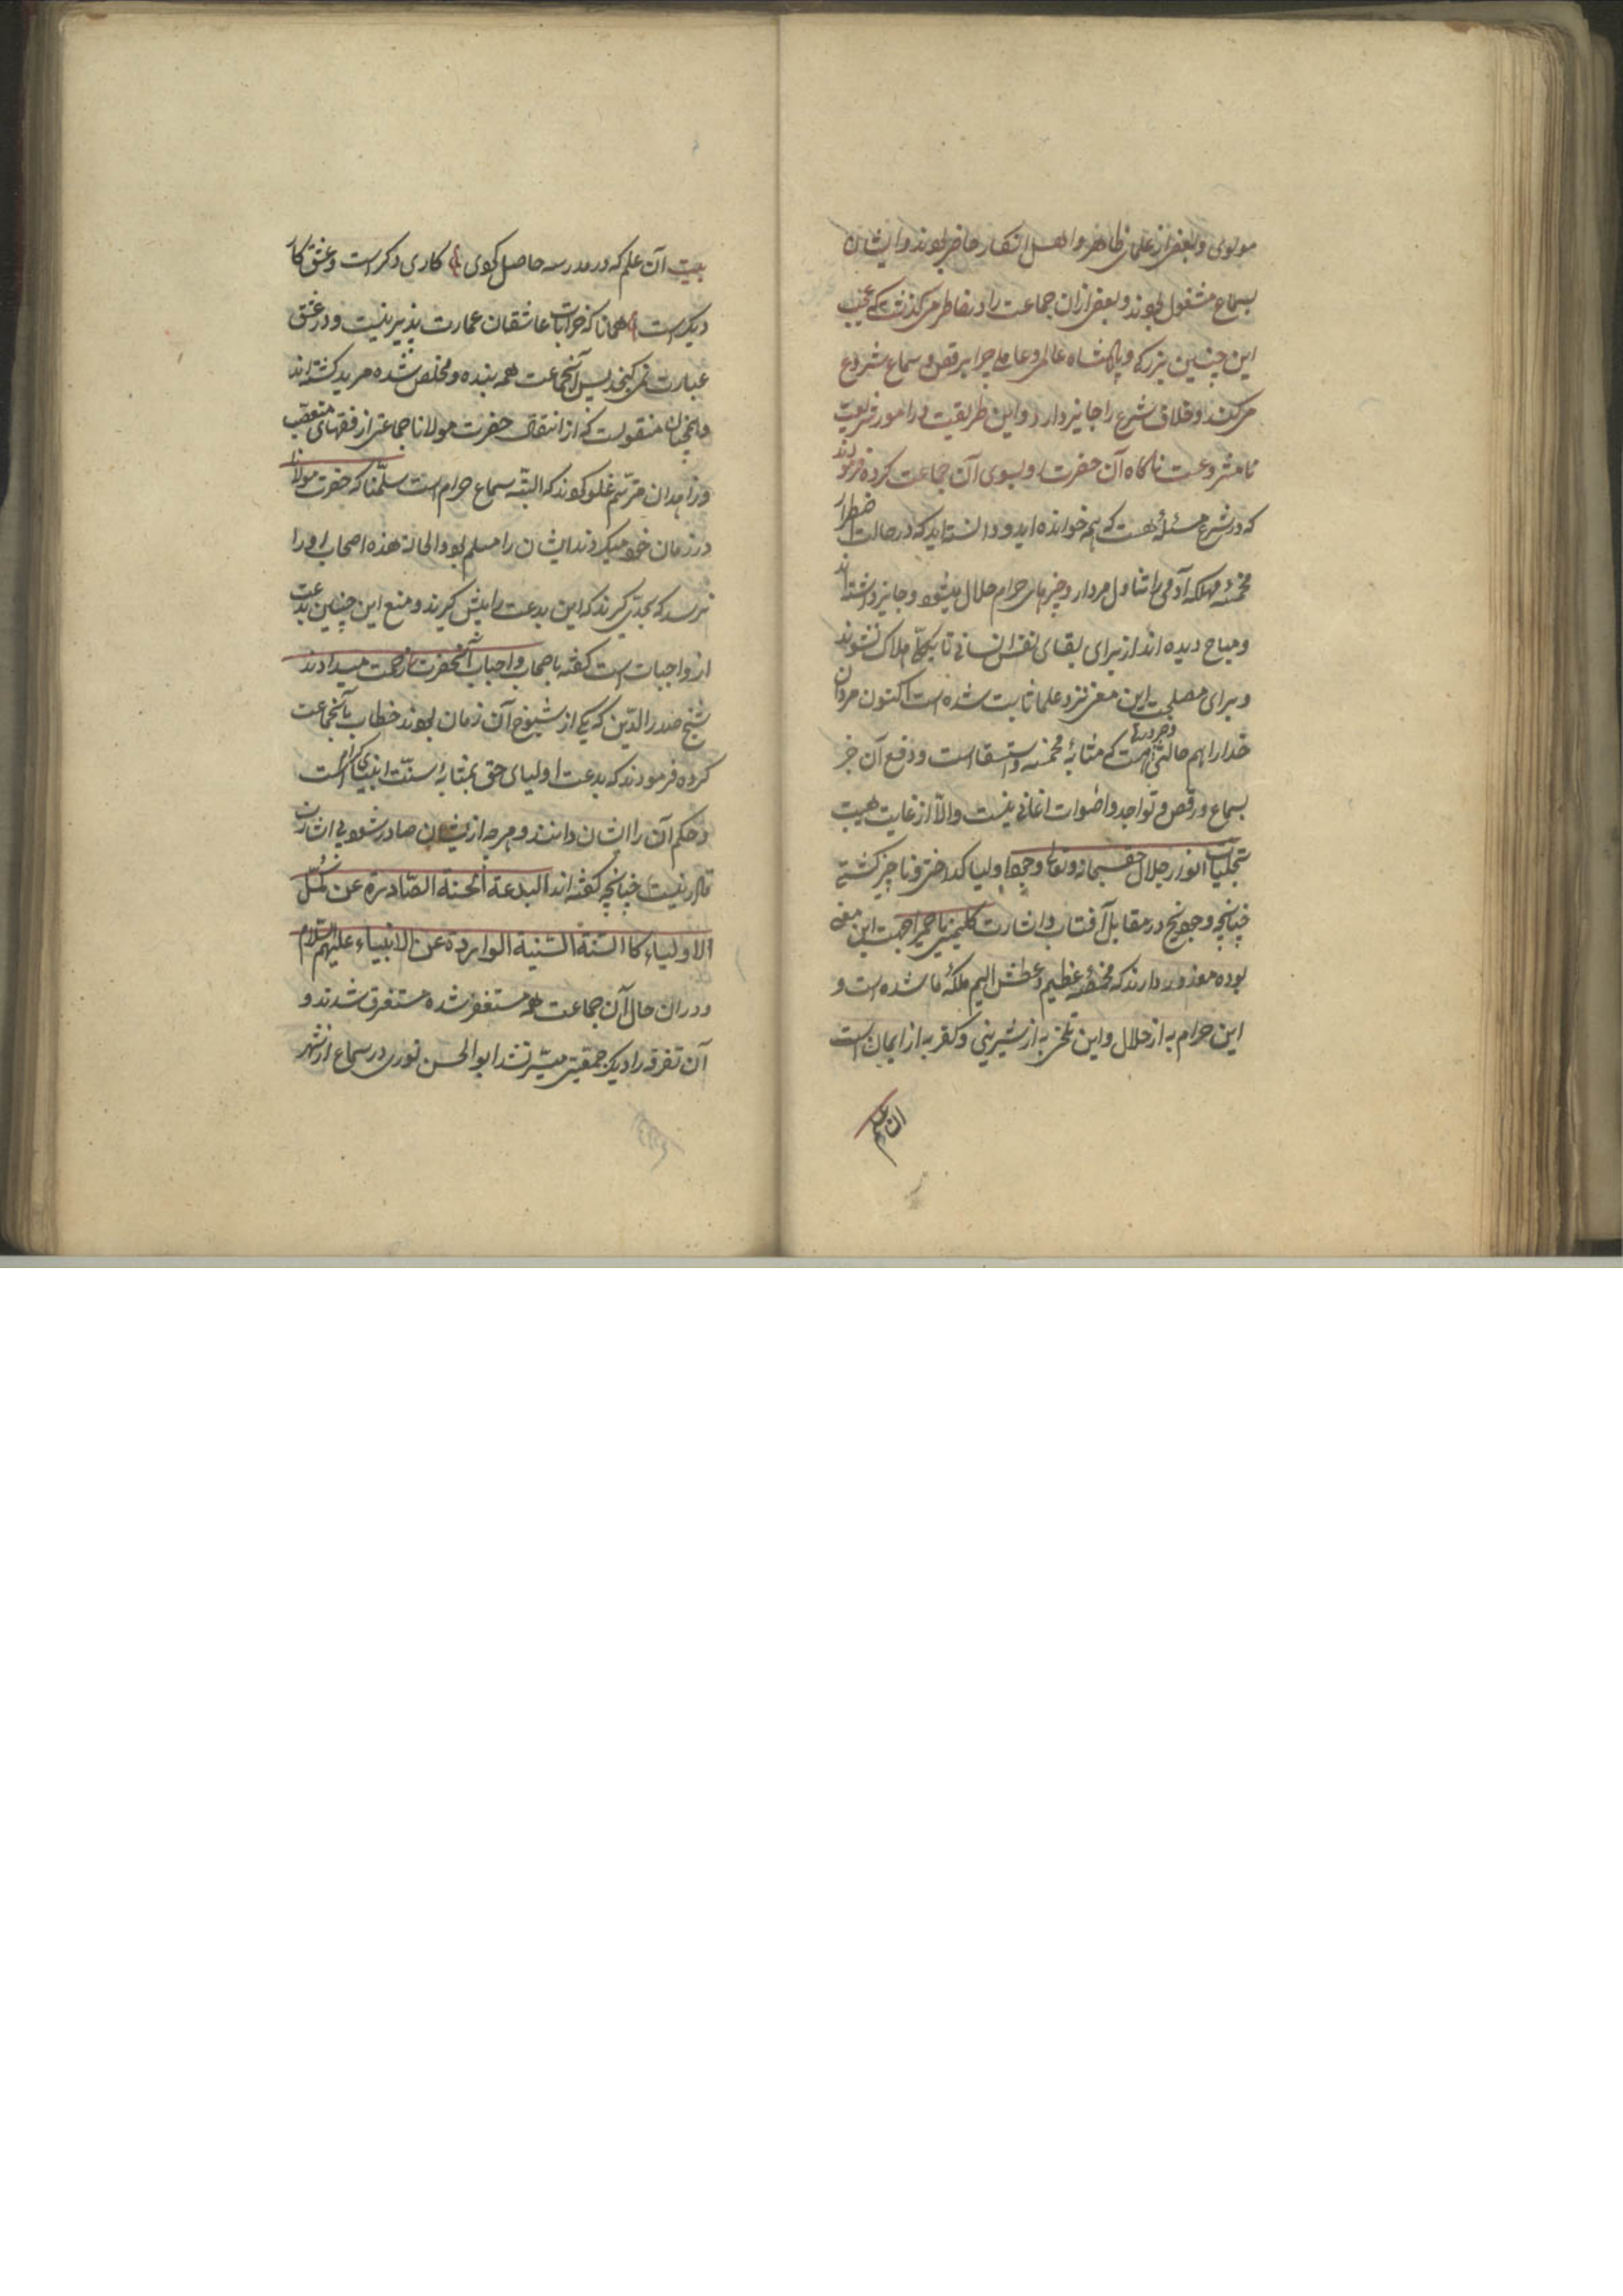 مولوی و بعضی از علمای ظاهر و اهل انکار حاضر بودند و ایشان
بسماع مشغول بودند و بعضی ازان جماعت را در خاطر می‌گذشت که عجب
این چنین بزرگی و پادشاه عالمی و عاملی چرا برقص و سماع شروع
می‌کند و خلاف شرع را جایز دارد و این طریقت در امور شریعت
نامشروعست ناگاه آن حضرت رو بسوی آن جماعت کرده فرمودند
که در شرع مسئله هست که هم خوانده اید و دانسته اید که در حالت اضطرار
مخمصه مهلکه آدمی را تناول مردار و چیزهای حرام حلال میشود و جایز داشته اند
و مباح دیده اند از برای بقای نفس انسانی تا بکلی هلاک نشوند
و برای مصلحت این معنی نزد علما ثابت شده است اکنون مردان
خدا را هم حالتی و ضرورتها هست که مثابه مخمصه و استسقا است و دفع آن جز
بسماع و رقص و تواجد و اصوات اغانی نیست والا از غایت هیبت
تجلیات انوار جلال حق سبحانه و تعالی وجود اولیا گداختی و ناچیز گشتی
چنانچه وجود یخ در مقابل آفتاب و اشارت کلمینی یا حمیرا جهت این معنی
بوده معذور دارند که مخمصه عظیم و عطش الیم ملکه ما شده است و
این حرام به از حلال و این تلخی به از شیرینی و کفر به از ایمان است
آن علم
بیت آن علم که در مدرسه حاصل کردی کاری دگر است و عشق کار
دیگر است همانا که خرابات عاشقان عمارت پذیر نیست و در عشق
عبارت نمی گنجد پس آنجماعت همه بنده و مخلص شده مرید گشته اند
و همچنان منقولست که از انتقال حضرت مولانا جماعتی از فقهای متعصب
و زاهدان مترسم غلو کردند که البته سماع حرام است سلمنا که حضرت مولانا
در زمان خود میکردند ایشان را مسلم بود والحالة هذه اصحاب او را
نرسد که بجدی گیرند که این بدعت را پیش گیرند و منع این چنین بدعت
از واجبات است گفته باصحاب و احباب آنحضرت زحمت میدادند
شیخ صدرالدین که یکی از شیوخ آن زمان بودند خطاب بآنجماعت
کرده فرمودند که بدعت اولیای حق بمثابهٔ سنت انبیای کرام است
و حکم آن را ایشان دانند و هرچه از ایشان صادر شود بی اشارت
نیست چنانچه گفته اند البدعة الحسنة الصادرة عن کمل
الاولیاء کالسنة السنیة الواردة عن الانبیاء علیهم السلام
و دران حال آن جماعت همه مستغفر شده متفرق شدند و
آن تفرقه را دیگر جمعیتی میسر نشد ابوالحسن نوری در سماع از شهر